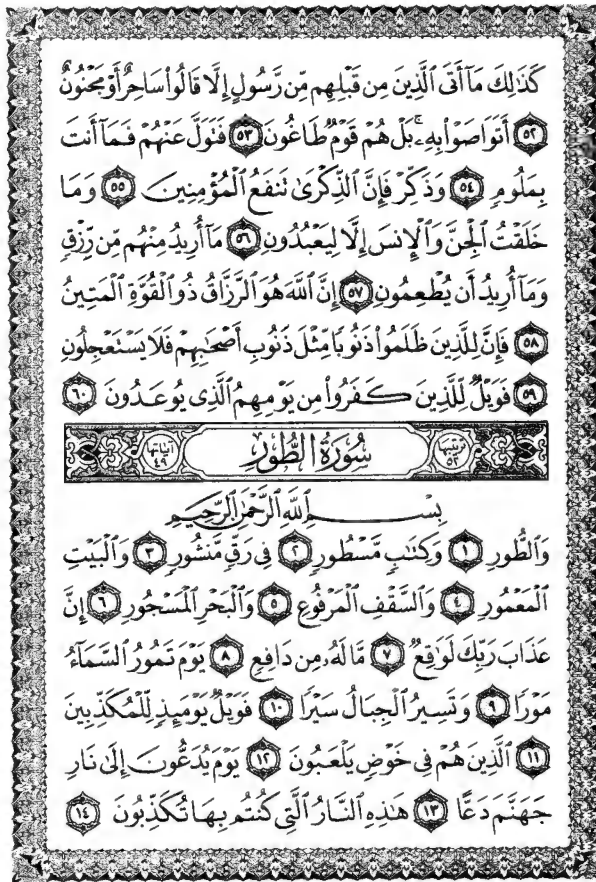 كَذَٰلِكَ مَآ أَتَى ٱلَّذِينَ مِن قَبْلِهِم مِّن رَّسُولٍ إِلَّا قَالُوا۟ سَاحِرٌ أَوْ مَجْنُونٌ
٥٢ أَتَوَاصَوْا۟ بِهِۦ ۚ بَلْ هُمْ قَوْمٌ طَاغُونَ ٥٣ فَتَوَلَّ عَنْهُمْ فَمَآ أَنتَ
بِمَلُومٍ ٥٤ وَذَكِّرْ فَإِنَّ ٱلذِّكْرَىٰ تَنفَعُ ٱلْمُؤْمِنِينَ ٥٥ وَمَا
خَلَقْتُ ٱلْجِنَّ وَٱلْإِنسَ إِلَّا لِيَعْبُدُونِ ٥٦ مَآ أُرِيدُ مِنْهُم مِّن رِّزْقٍ
وَمَآ أُرِيدُ أَن يُطْعِمُونِ ٥٧ إِنَّ ٱللَّهَ هُوَ ٱلرَّزَّاقُ ذُو ٱلْقُوَّةِ ٱلْمَتِينُ
٥٨ فَإِنَّ لِلَّذِينَ ظَلَمُوا۟ ذَنُوبًا مِّثْلَ ذَنُوبِ أَصْحَٰبِهِمْ فَلَا يَسْتَعْجِلُونِ
٥٩ فَوَيْلٌ لِّلَّذِينَ كَفَرُوا۟ مِن يَوْمِهِمُ ٱلَّذِى يُوعَدُونَ ٦٠
ترتيبها ٥٢ سُورَةُ الطُّورِ آياتها ٤٩
بِسْمِ ٱللَّهِ ٱلرَّحْمَٰنِ ٱلرَّحِيمِ
وَٱلطُّورِ ١ وَكِتَٰبٍ مَّسْطُورٍ ٢ فِى رَقٍّ مَّنشُورٍ ٣ وَٱلْبَيْتِ
ٱلْمَعْمُورِ ٤ وَٱلسَّقْفِ ٱلْمَرْفُوعِ ٥ وَٱلْبَحْرِ ٱلْمَسْجُورِ ٦ إِنَّ
عَذَابَ رَبِّكَ لَوَٰقِعٌ ٧ مَّا لَهُۥ مِن دَافِعٍ ٨ يَوْمَ تَمُورُ ٱلسَّمَآءُ
مَوْرًا ٩ وَتَسِيرُ ٱلْجِبَالُ سَيْرًا ١٠ فَوَيْلٌ يَوْمَئِذٍ لِّلْمُكَذِّبِينَ
١١ ٱلَّذِينَ هُمْ فِى خَوْضٍ يَلْعَبُونَ ١٢ يَوْمَ يُدَعُّونَ إِلَىٰ نَارِ
جَهَنَّمَ دَعًّا ١٣ هَٰذِهِ ٱلنَّارُ ٱلَّتِى كُنتُم بِهَا تُكَذِّبُونَ ١٤